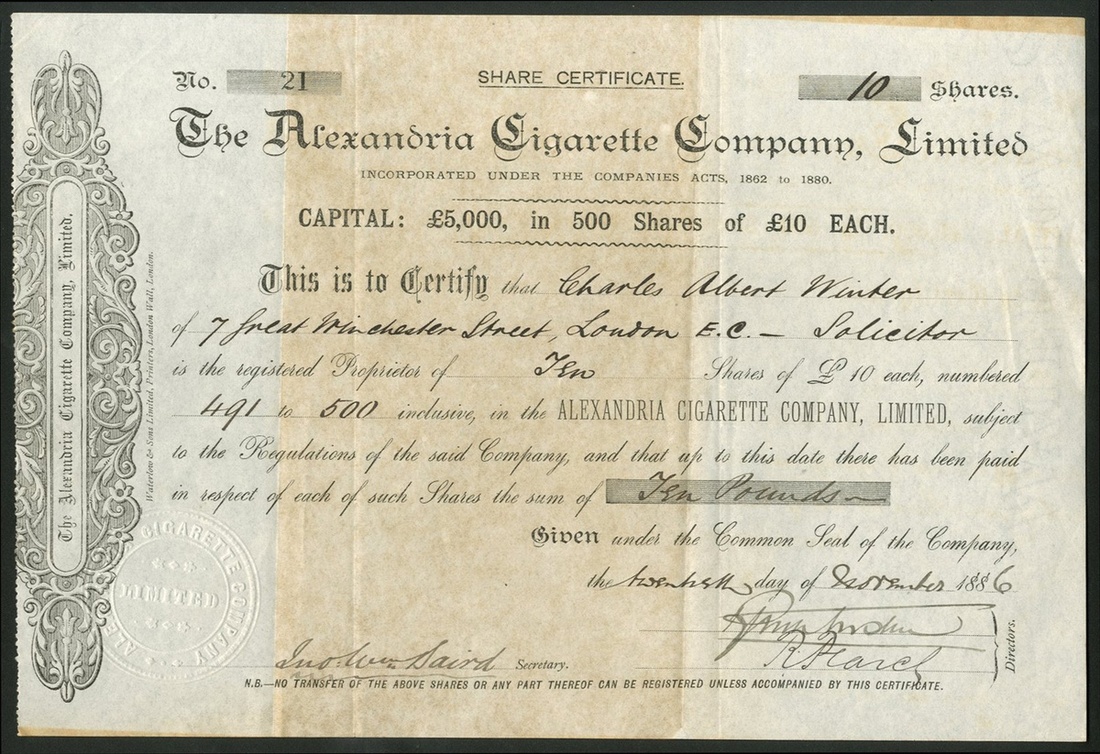 No. 21
SHARE CERTIFICATE.
10 Shares.
The Alexandria Cigarette Company, Limited
INCORPORATED UNDER THE COMPANIES ACTS, 1862 to 1880.
CAPITAL: £5,000, in 500 Shares of £10 EACH.
This is to Certify that Charles Albert Winter
of 7 Great Winchester Street, London E.C. — Solicitor
is the registered Proprietor of Ten Shares of £10 each, numbered
491 to 500 inclusive, in the ALEXANDRIA CIGARETTE COMPANY, LIMITED, subject
to the Regulations of the said Company, and that up to this date there has been paid
in respect of each of such Shares the sum of Ten Pounds —
Given under the Common Seal of the Company,
the twentieth day of November 1886
Directors.
Jno. Wm. Baird Secretary.
N.B.—NO TRANSFER OF THE ABOVE SHARES OR ANY PART THEREOF CAN BE REGISTERED UNLESS ACCOMPANIED BY THIS CERTIFICATE.
The Alexandria Cigarette Company, Limited.
Waterlow & Sons Limited, Printers, London Wall, London.
CIGARETTE COMPANY
LIMITED